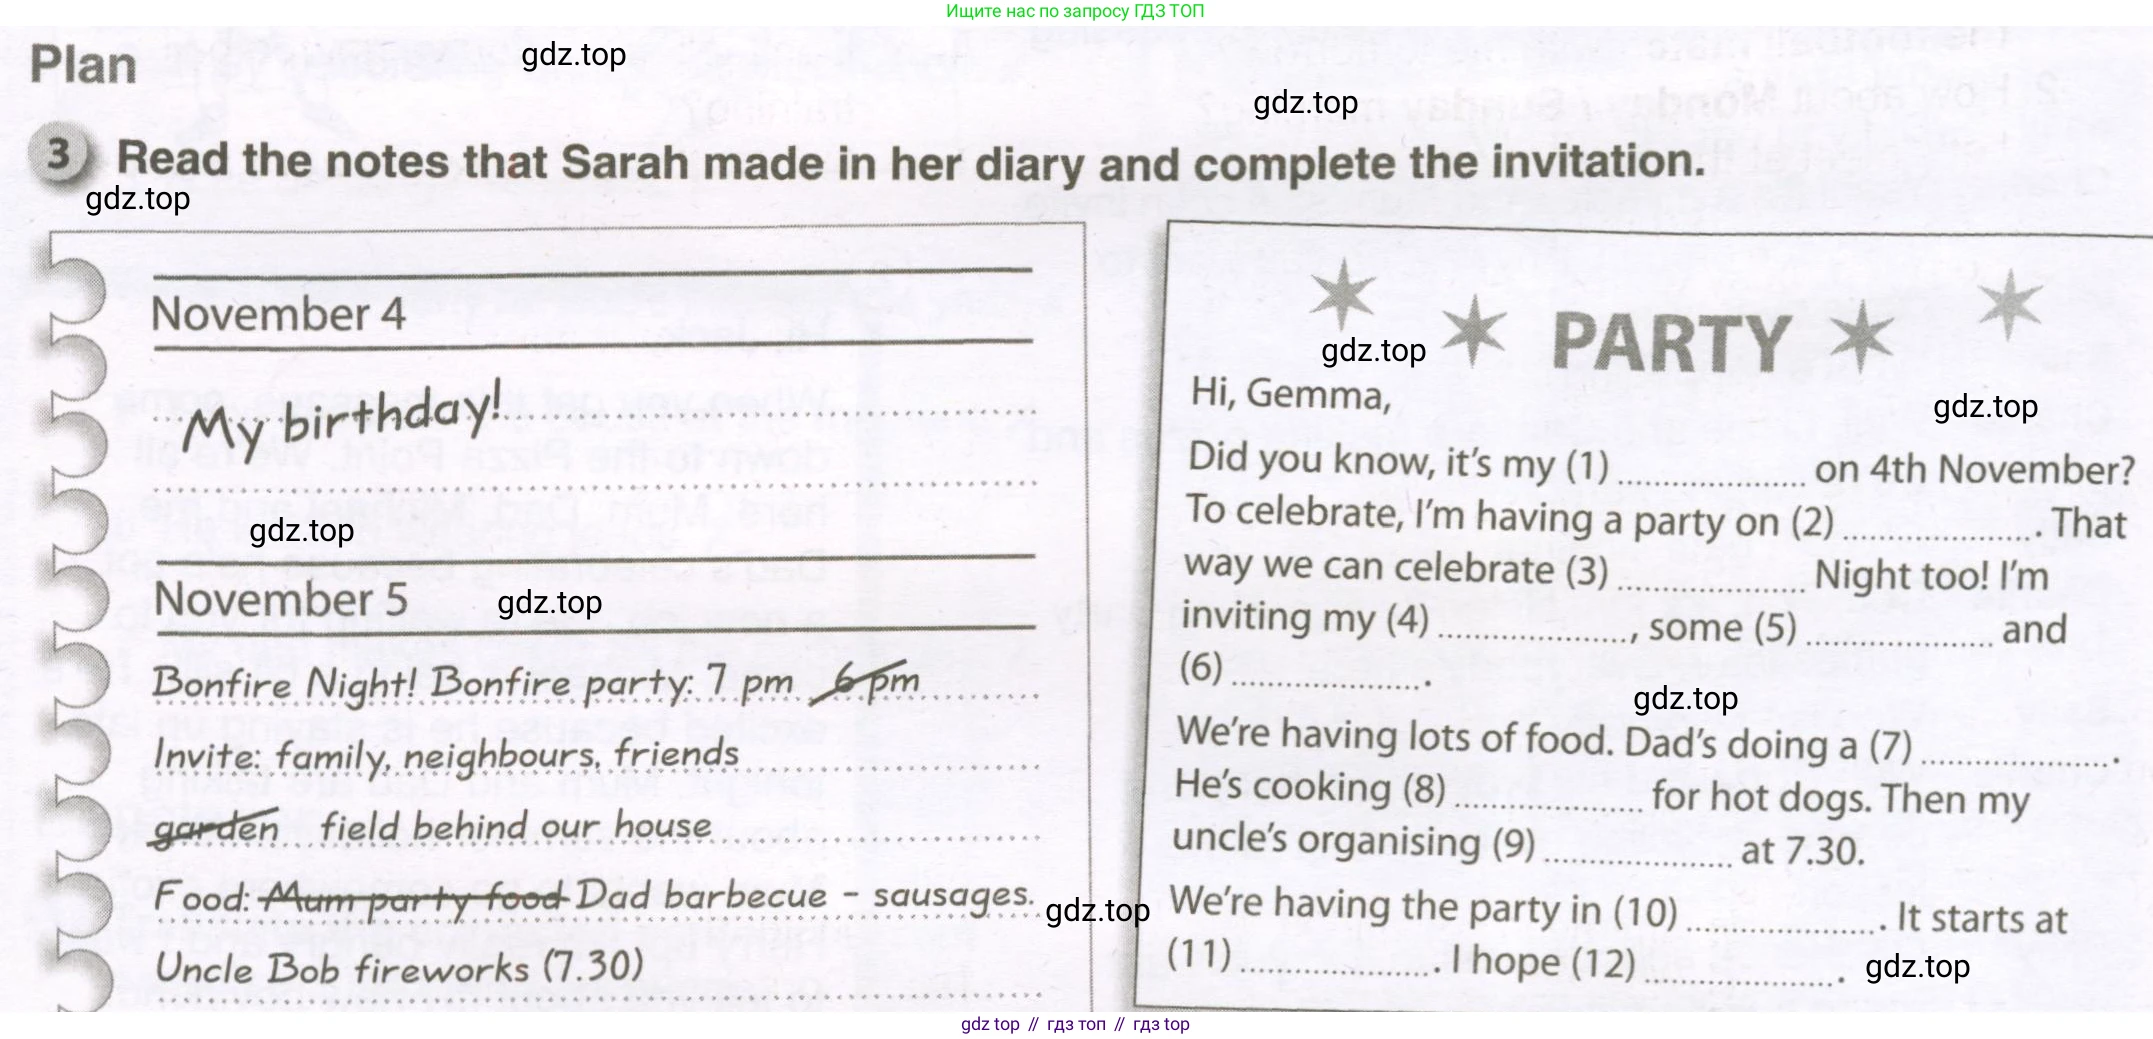 Ищите нас по запросу ГДЗ ТОП
Plan
gdz.top
gdz.top
3 Read the notes that Sarah made in her diary and complete the invitation.
gdz.top
November 4
My birthday!
gdz.top
November 5
gdz.top
Bonfire Night! Bonfire party: 7 pm 6 pm
Invite: family, neighbours, friends
garden field behind our house
Food: Mum party food Dad barbecue – sausages.
Uncle Bob fireworks (7.30)
gdz.top
PARTY
gdz.top
Hi, Gemma,
gdz.top
Did you know, it's my (1) .................... on 4th November?
To celebrate, I'm having a party on (2) .................... . That
way we can celebrate (3) .................... Night too! I'm
inviting my (4) ...................., some (5) .................... and
(6) .................... .
gdz.top
We're having lots of food. Dad's doing a (7) .................... .
He's cooking (8) .................... for hot dogs. Then my
uncle's organising (9) .................... at 7.30.
We're having the party in (10) .................... . It starts at
(11) .................... . I hope (12) .................... .
gdz.top
gdz top // гдз топ // гдз top